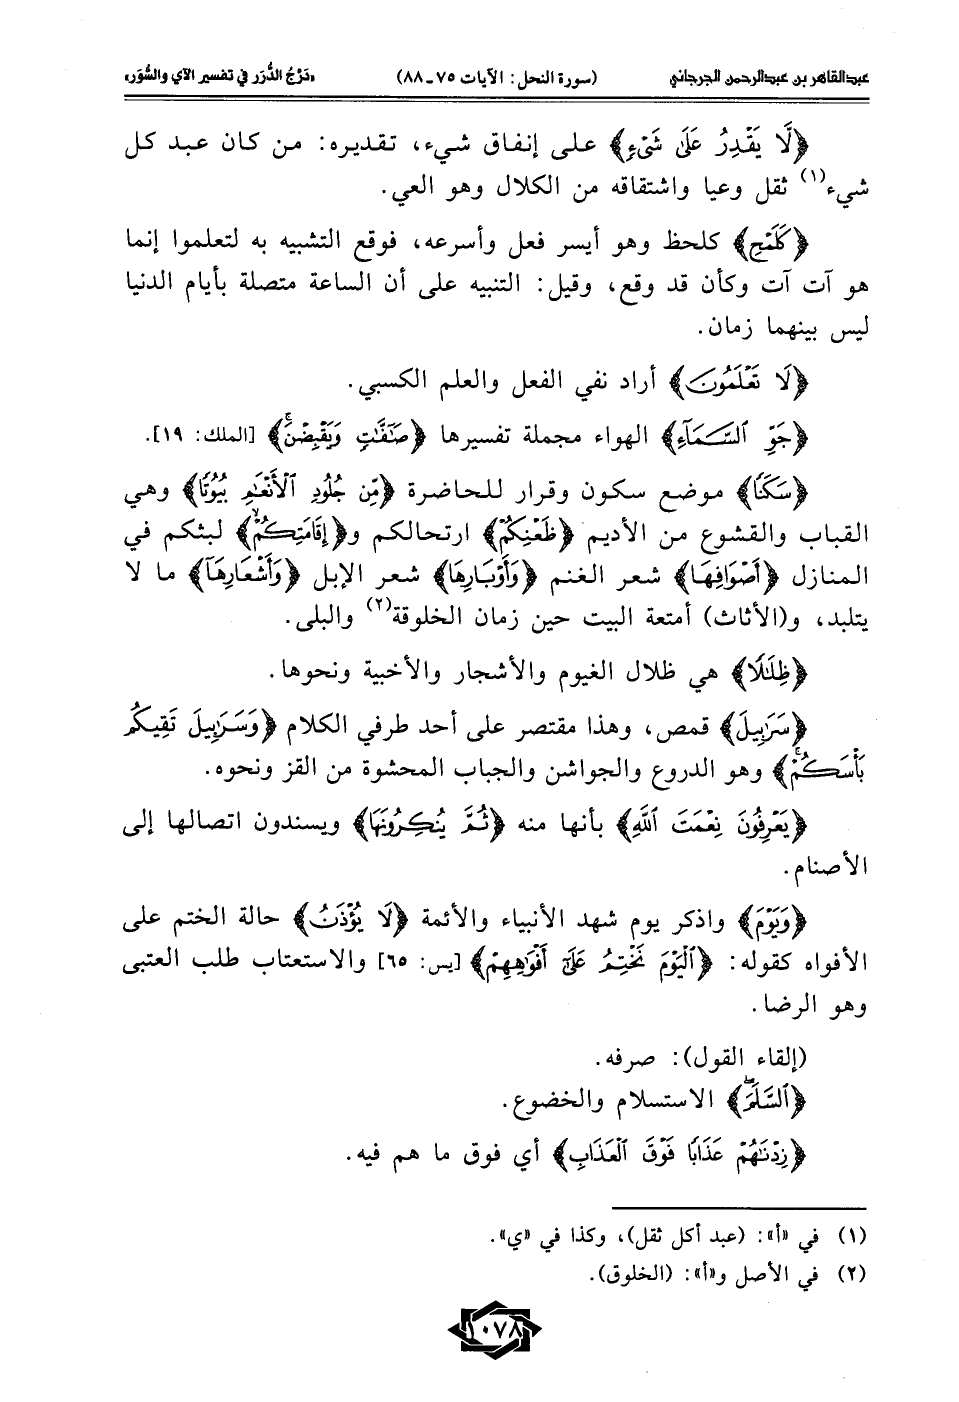 عبدالقاهر بن عبدالرحمن الجرجاني (سورة النحل: الآيات ٧٥-٨٨) «دَرْجُ الدُّرَر في تفسير الآي والسُّوَر»
﴿لَّا يَقْدِرُ عَلَىٰ شَىْءٍ﴾ على إنفاق شيء، تقديره: من كان عبد كل
شيء(١) ثقل وعيا واشتقاقه من الكلال وهو العي.
﴿كَلَمْحِ﴾ كلحظ وهو أيسر فعل وأسرعه، فوقع التشبيه به لتعلموا إنما
هو آت آت وكأن قد وقع، وقيل: التنبيه على أن الساعة متصلة بأيام الدنيا
ليس بينهما زمان.
﴿لَا تَعْلَمُونَ﴾ أراد نفي الفعل والعلم الكسبي.
﴿جَوِّ ٱلسَّمَآءِ﴾ الهواء مجملة تفسيرها ﴿صَٰٓفَّٰتٍ وَيَقْبِضْنَۚ﴾ [الملك: ١٩].
﴿سَكَنًا﴾ موضع سكون وقرار للحاضرة ﴿مِّن جُلُودِ ٱلْأَنْعَٰمِ بُيُوتًا﴾ وهي
القباب والقشوع من الأديم ﴿ظَعْنِكُمْ﴾ ارتحالكم و﴿إِقَامَتِكُمْۙ﴾ لبثكم في
المنازل ﴿أَصْوَافِهَا﴾ شعر الغنم ﴿وَأَوْبَارِهَا﴾ شعر الإبل ﴿وَأَشْعَارِهَآ﴾ ما لا
يتلبد، و(الأثاث) أمتعة البيت حين زمان الخلوقة(٢) والبلى.
﴿ظِلَٰلًا﴾ هي ظلال الغيوم والأشجار والأخبية ونحوها.
﴿سَرَٰبِيلَ﴾ قمص، وهذا مقتصر على أحد طرفي الكلام ﴿وَسَرَٰبِيلَ تَقِيكُم
بَأْسَكُمْۚ﴾ وهو الدروع والجواشن والجباب المحشوة من القز ونحوه.
﴿يَعْرِفُونَ نِعْمَتَ ٱللَّهِ﴾ بأنها منه ﴿ثُمَّ يُنكِرُونَهَا﴾ ويسندون اتصالها إلى
الأصنام.
﴿وَيَوْمَ﴾ واذكر يوم شهد الأنبياء والأئمة ﴿لَا يُؤْذَنُ﴾ حالة الختم على
الأفواه كقوله: ﴿ٱلْيَوْمَ نَخْتِمُ عَلَىٰٓ أَفْوَٰهِهِمْ﴾ [يس: ٦٥] والاستعتاب طلب العتبى
وهو الرضا.
(إلقاء القول): صرفه.
﴿ٱلسَّلَمَۖ﴾ الاستسلام والخضوع.
﴿زِدْنَٰهُمْ عَذَابًا فَوْقَ ٱلْعَذَابِ﴾ أي فوق ما هم فيه.
(١) في «أ»: (عبد أكل ثقل)، وكذا في «ي».
(٢) في الأصل و«أ»: (الخلوق).
١٠٧٨